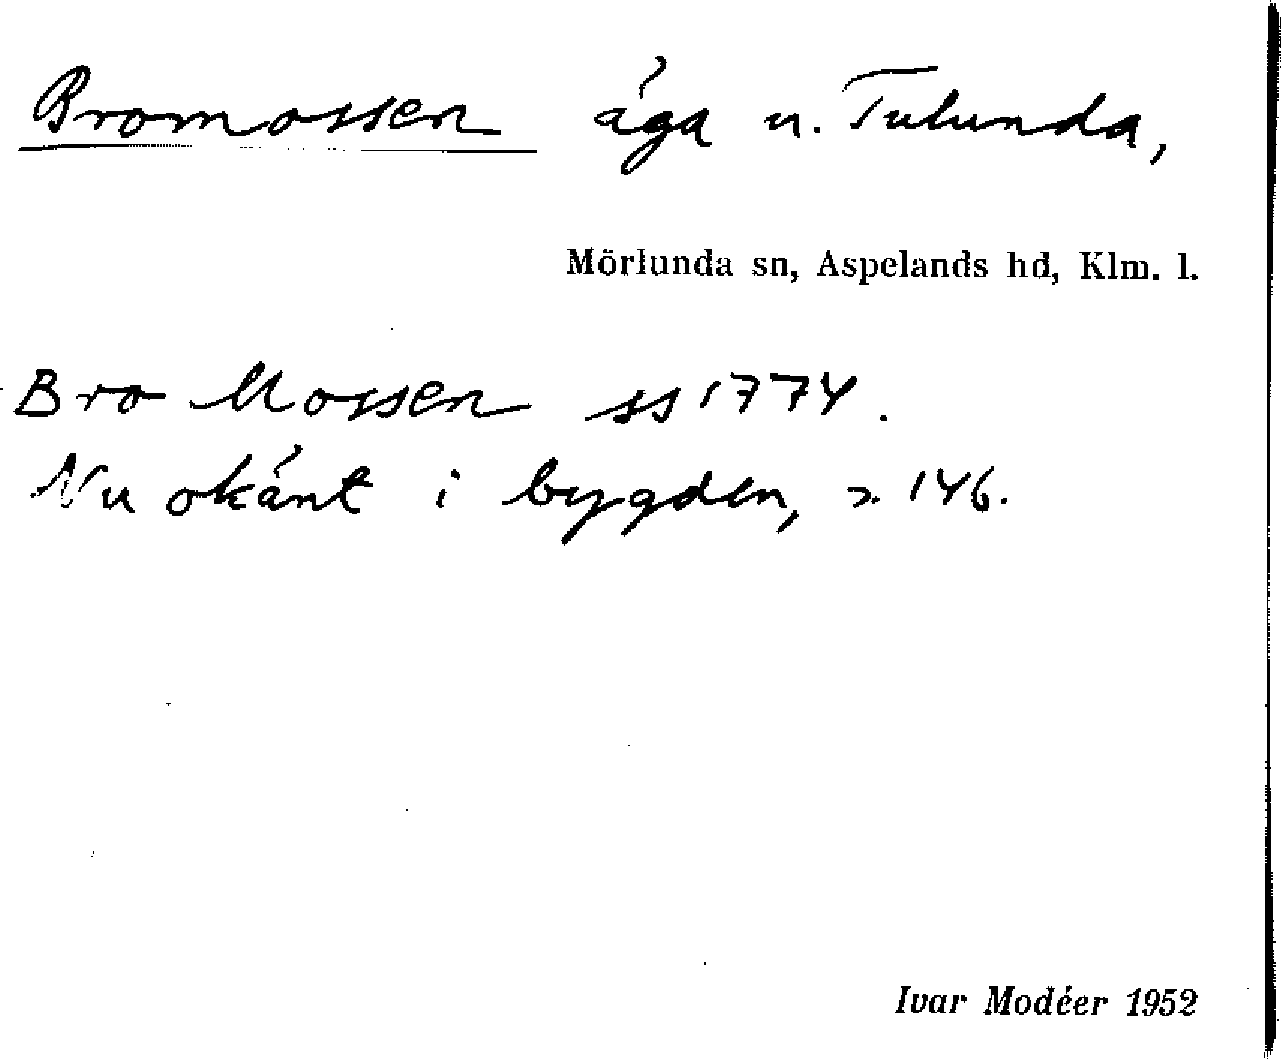 Bromossen äga u. Tulunda,
Mörlunda sn, Aspelands hd, Klm. l.
Bro Mossen ss 1774.
Nu okänt i bygden, s. 146.
Ivar Modéer 1952